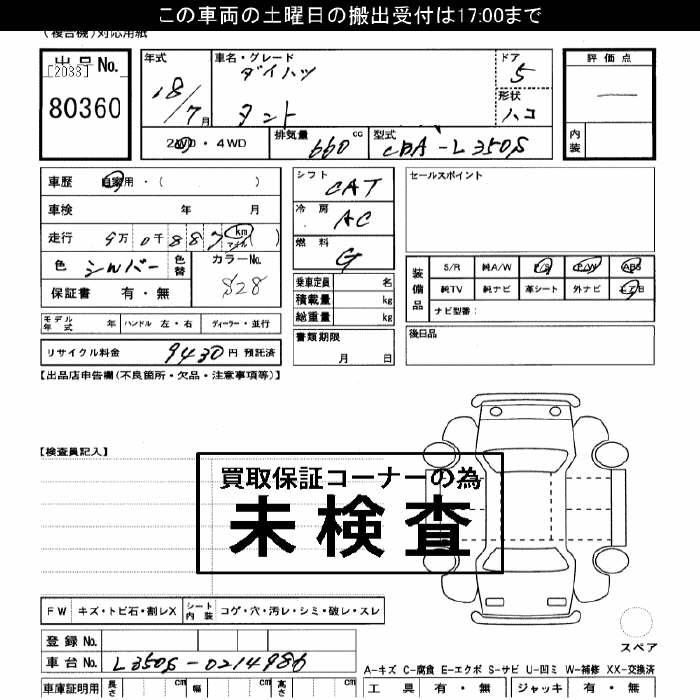 この車両の土曜日の搬出受付は17:00まで
(複合機)対応用紙
出品No.
[2033]
80360
年式
18/7月
車名・グレード
ダイハツ
タント
ドア
5
形状
ハコ
評価点
—
内装
2WD・4WD
排気量
660cc
型式
CBA-L350S
車歴 自家用・( )
車検 年 月
走行 9万0千887 km マイル ( )
色 シルバー
色替
カラーNo.
S28
保証書 有・無
モデル年式 年
ハンドル 左・右
ディーラー・並行
リサイクル料金 9430円 預託済
シフト
CAT
冷房
AC
燃料
G
乗車定員 名
積載量 kg
総重量 kg
書類期限
月 日
セールスポイント
装備品
S/R 純A/W P/S P/W ABS
純TV 純ナビ 革シート 外ナビ エアB
ナビ型番:
後日品
【出品店申告欄(不良箇所・欠品・注意事項等)】
【検査員記入】
買取保証コーナーの為
未検査
FW キズ・トビ石・割レX
シート内装 コゲ・穴・汚レ・シミ・破レ・スレ
スペア
登録No.
車台No. L350S-0214986
A-キズ C-腐食 E-エクボ S-サビ U-凹ミ W-補修 XX-交換済
車庫証明用 長さ cm 幅 cm 高さ cm
工具 有・無 ジャッキ 有・無